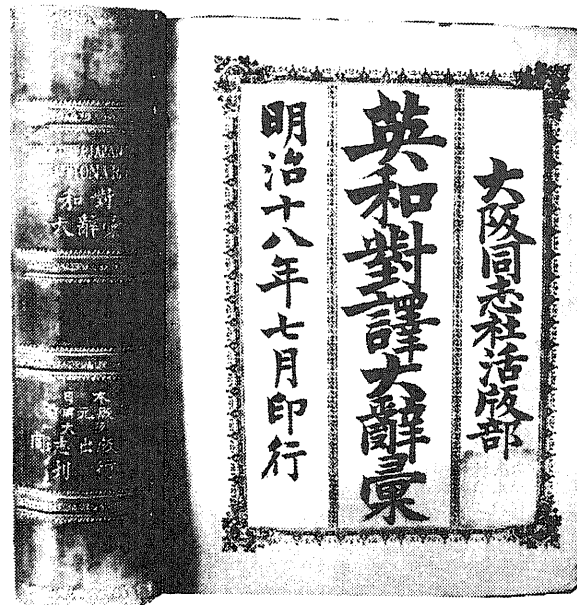 大阪同志社活版部
英和對譯大辭彙
明治十八年七月印行
和對
大辭